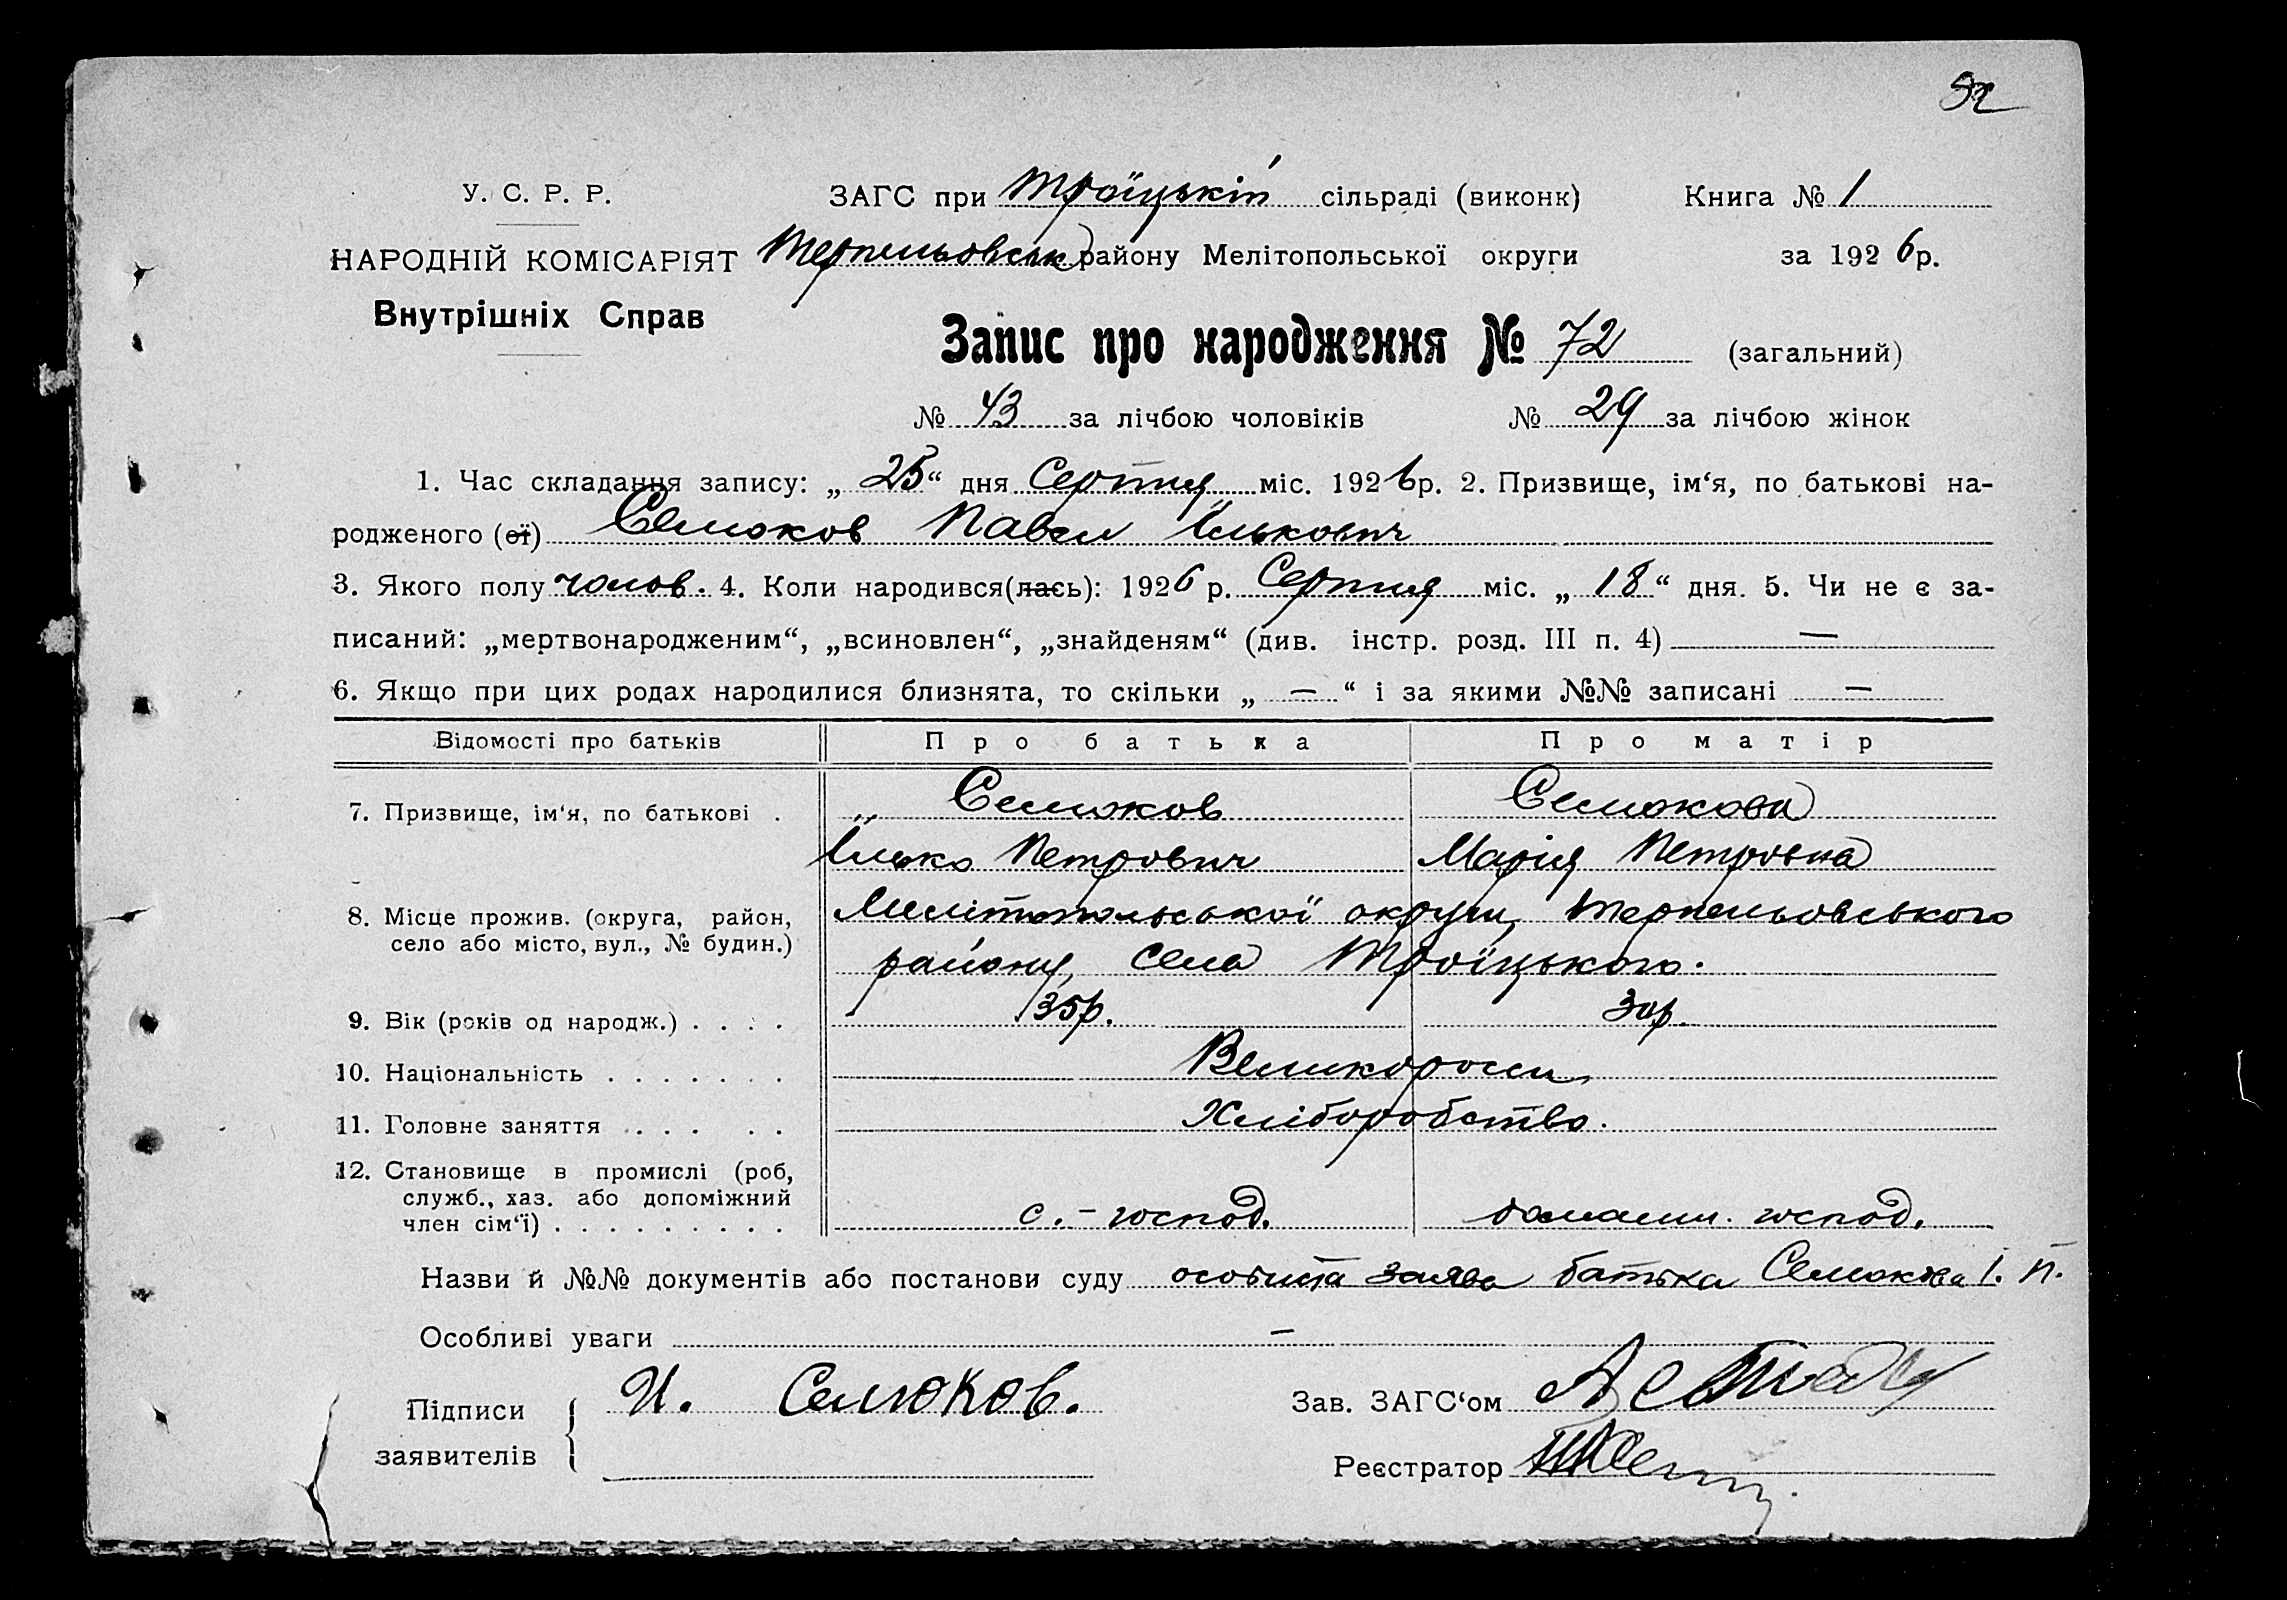 92
У. С. Р. Р. ЗАГС при Троїцькій сільраді (виконк) Книга № 1
НАРОДНІЙ КОМІСАРІЯТ Терпеньовськ району Мелітопольської округи за 1926р.
Внутрішніх Справ
Запис про народження № 72 (загальний)
№ 43 за лічбою чоловіків № 29 за лічбою жінок
1. Час складання запису: „ 25 “ дня Серпня міс. 1926р. 2. Призвище, ім‘я, по батькові на-
родженого (ої) Селюков Павел Їлькович
3. Якого полу чолов. 4. Коли народився(лась): 1926 р. Серпня міс. „ 18 “ дня. 5. Чи не є за-
писаний: „мертвонародженим“, „всиновлен“, „знайденям“ (див. інстр. розд. III п. 4) —
6. Якщо при цих родах народилися близнята, то скільки „ — “ і за якими №№ записані —
Відомості про батьків Про батька Про матір
7. Призвище, ім‘я, по батькові . Селюков Селюкова
Їлько Петрович Марія Петровна
8. Місце прожив. (округа, район, Мелітопольської округи, Терпеньовського
село або місто, вул., № будин.) району, села Троїцького.
9. Вік (років од народж.) . . . . 35р. 30р.
10. Національність . . . . . . . Великороси
11. Головне заняття . . . . . Хліборобство.
12. Становище в промислі (роб,
служб., хаз. або допоміжний
член сім‘ї) . . . . . . . . . с.-господ. домашн. господ.
Назви й №№ документів або постанови суду особиста заява батька Селюкова І. П.
Особливі уваги —
Підписи И. Селюков. Зав. ЗАГС‘ом
заявителів Реєстратор